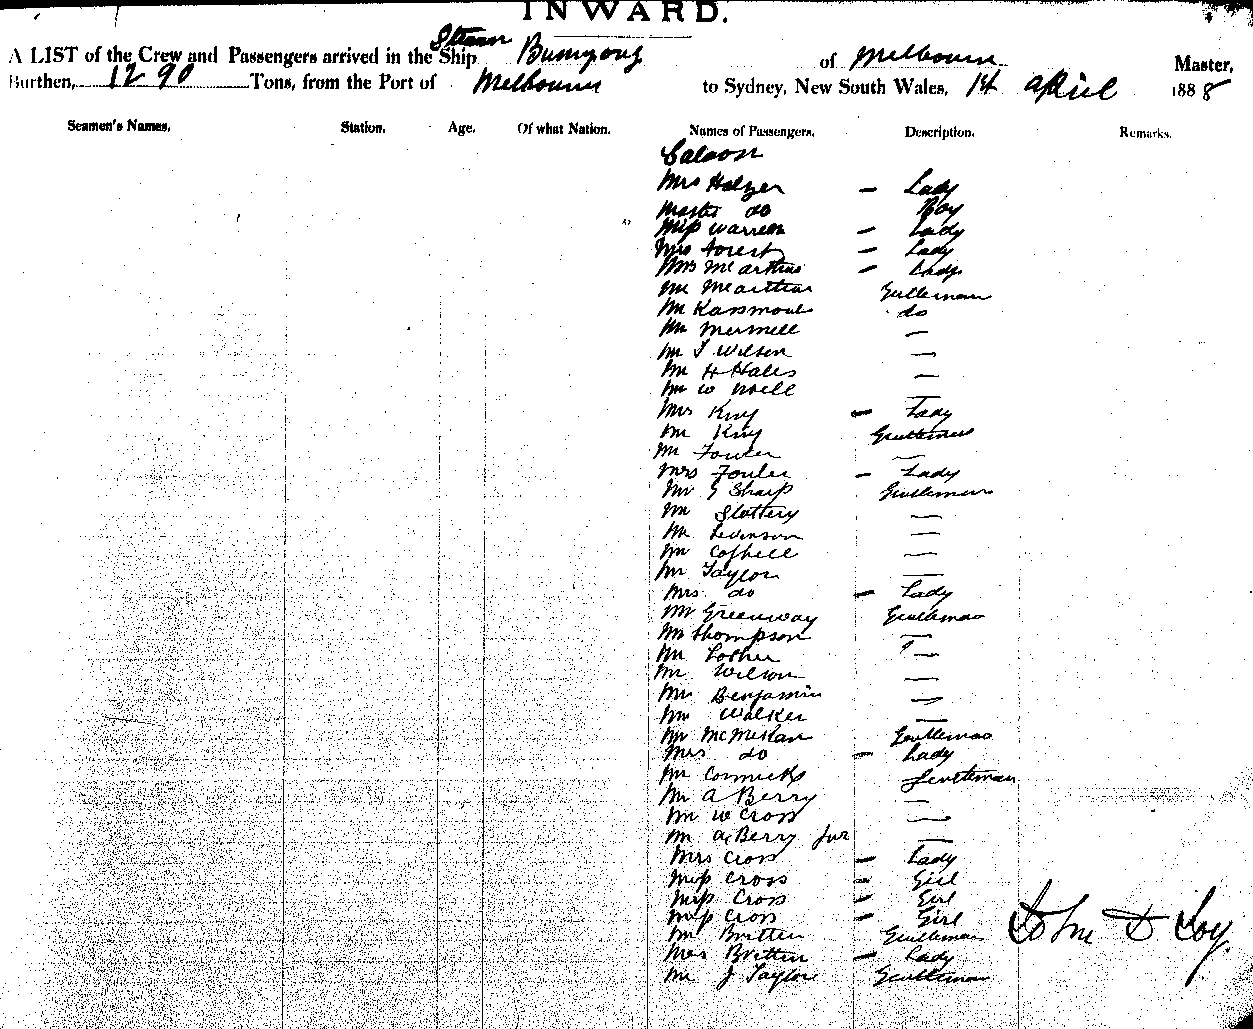 INWARD.
A LIST of the Crew and Passengers arrived in the Steam Ship of Melbourne Master,
Burthen, 1290 Tons, from the Port of Melbourne to Sydney, New South Wales, 14 April 1888
Seamen's Names. Station. Age. Of what Nation. Names of Passengers. Description. Remarks.
Saloon
Mrs Holzer — Lady
Master do Boy
Miss Warren — Lady
Mrs Forest — Lady
Mrs McArthur — Lady
Mr McArthur Gentleman
Mr do
Mr —
Mr Wilson —
Mr H Hales —
Mr W Noell —
Mrs King — Lady
Mr King Gentleman
Mr Fowler —
Mrs Fowler — Lady
Mr G Sharp Gentleman
Mr Slattery —
Mr Levinson —
Mr —
Mr Taylor —
Mrs do — Lady
Mr Greenway Gentleman
Mr Thompson —
Mr —
Mr Wilson —
Mr Benjamin —
Mr Walker —
Mr McMeikan Gentleman
Mrs do — Lady
Mr Gentleman
Mr A Berry —
Mr W Cross —
Mr A Berry Jnr —
Mrs Cross — Lady
Miss Cross — Girl
Miss Cross — Girl
Miss Cross — Girl
Mr Britten Gentleman
Mrs Britten — Lady
Mr J Taylor Gentleman
John